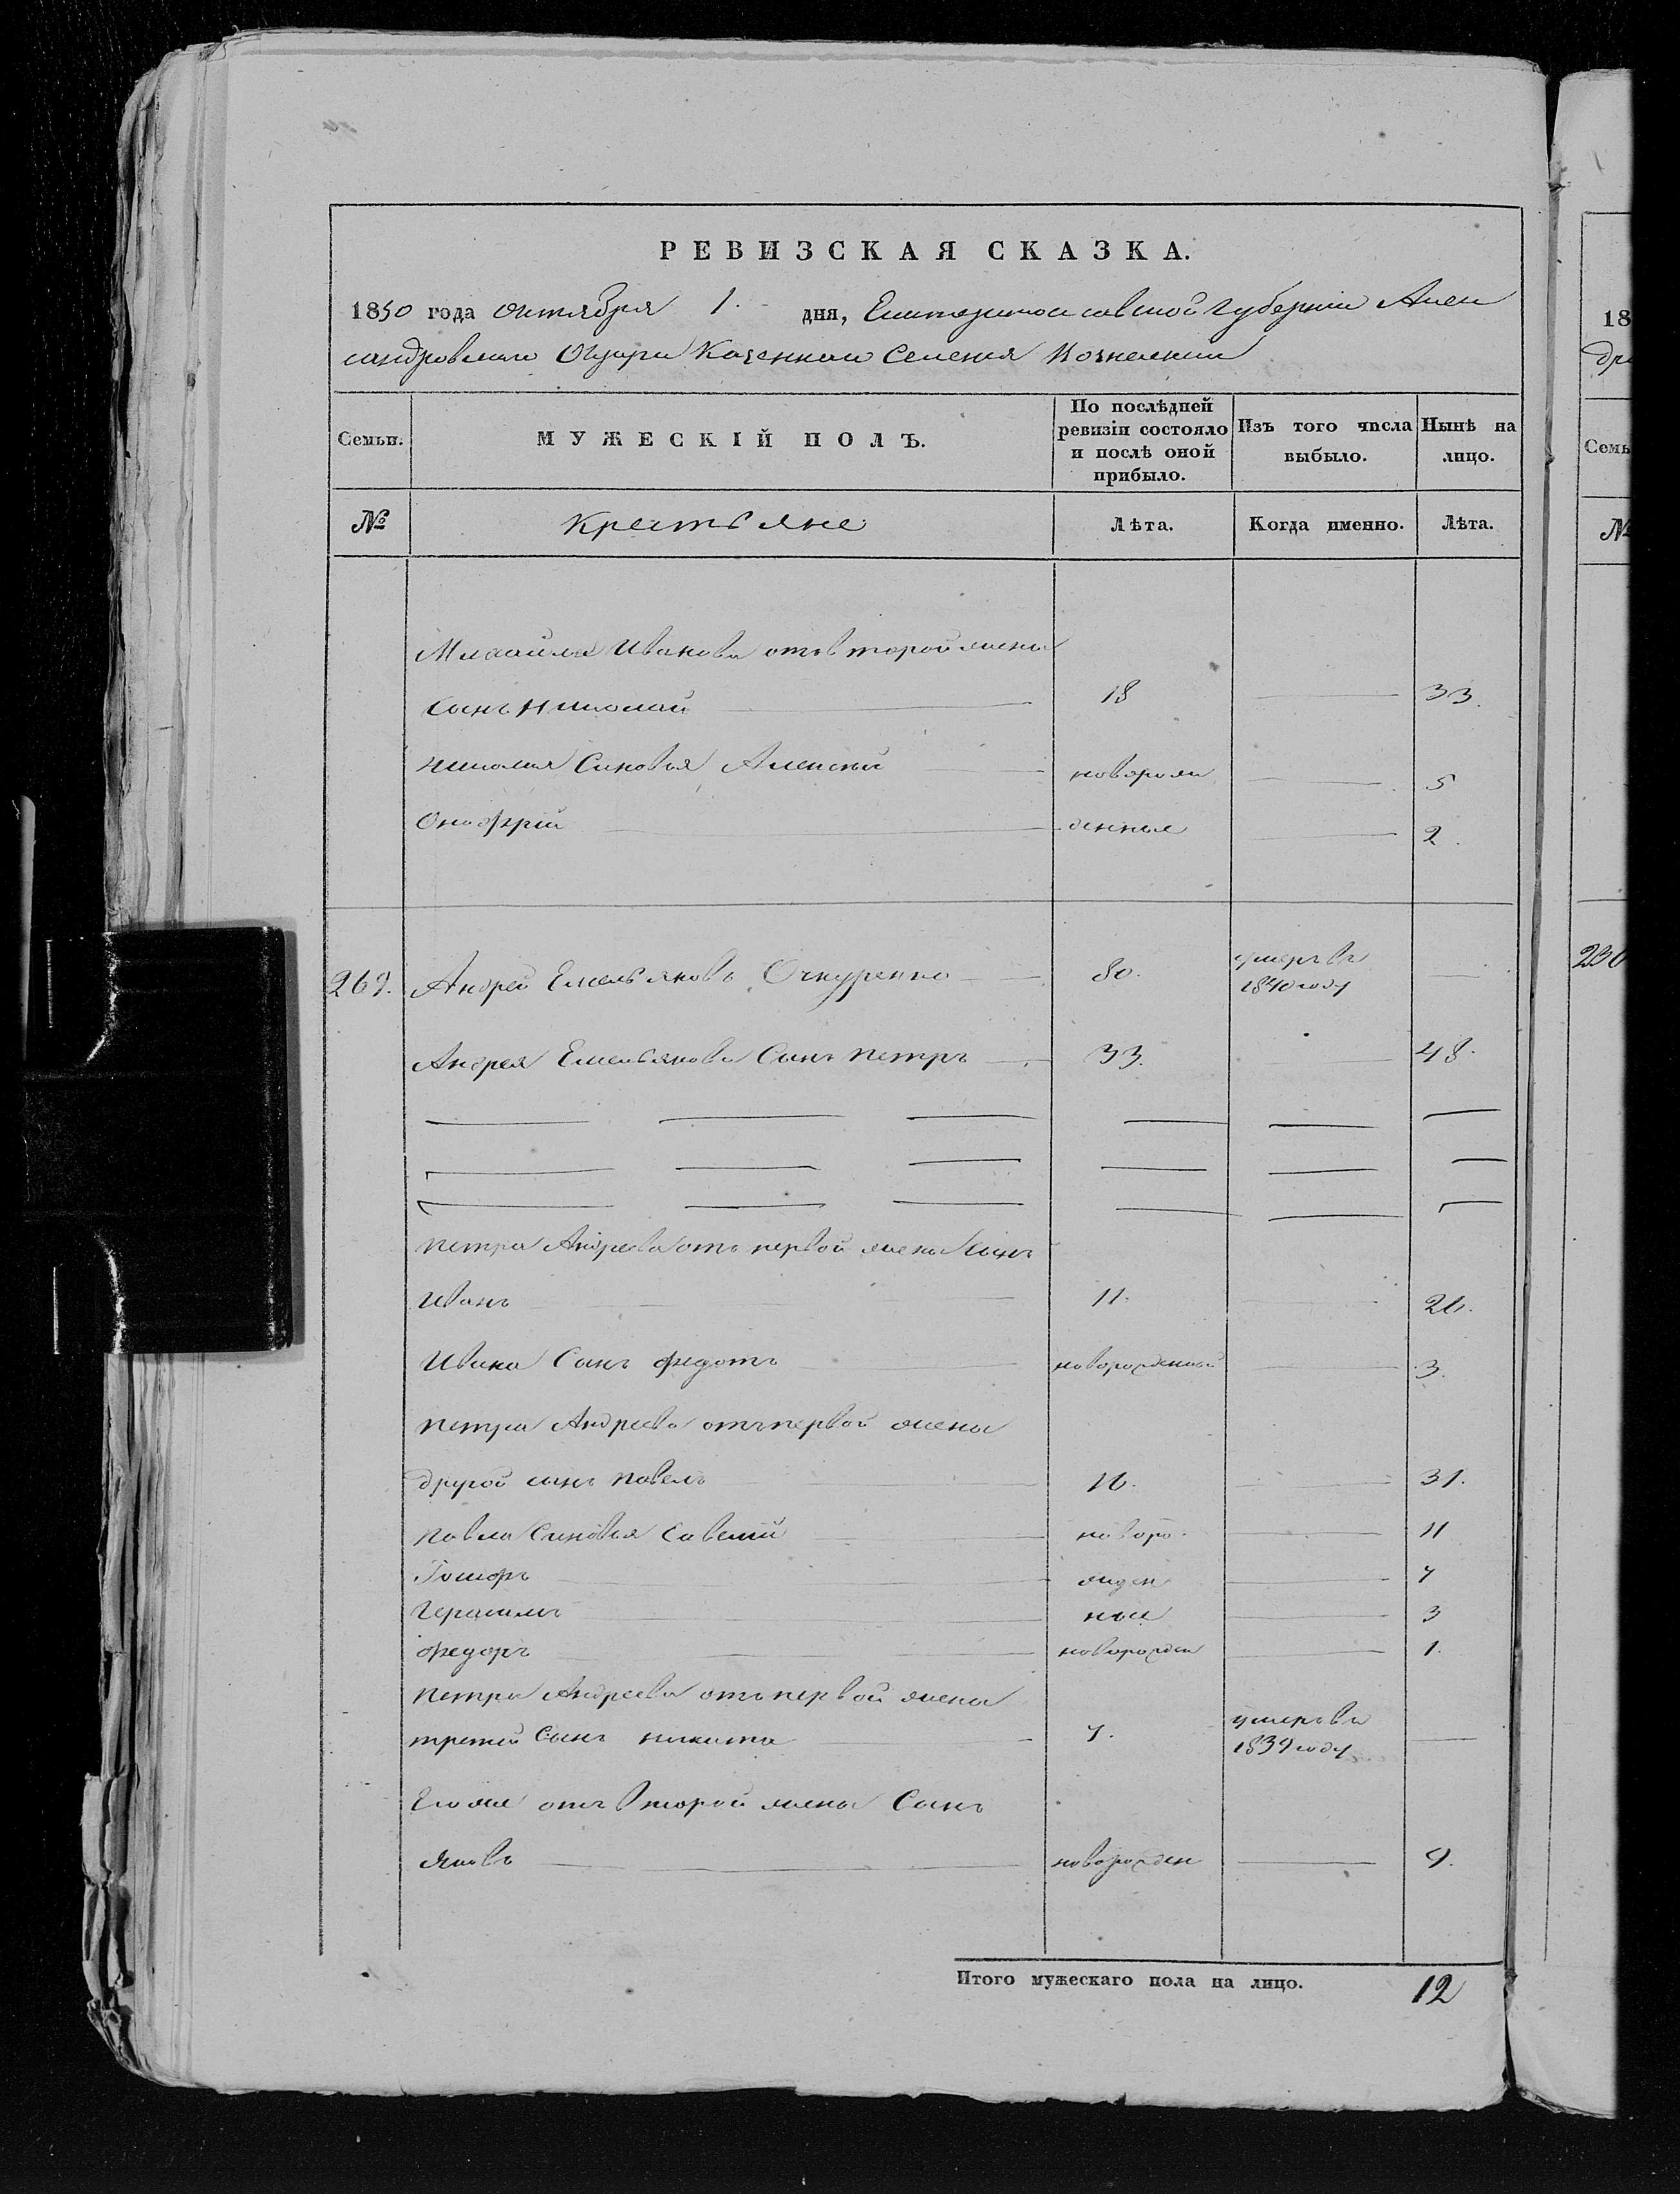 РЕВИЗСКАЯ СКАЗКА.
1850 года Октября 1. дня, Екатеринославской Губернии Алек
сандровскаго Казеннаго Селения
Семьи. МУЖЕСКІЙ ПОЛЪ. По послѣдней ревизіи состояло и послѣ оной прибыло. Изъ того числа выбыло. Нынѣ на лицо.
№ Крестьяне Лѣта. Когда именно. Лѣта.
Михайла Иванова отъ второй жены
сынъ Николай 18 33.
Николая Сыновья Алексей новорож 5
Онофрій денные 2.
269. Андрей Емельяновъ Очкуренко 80. умеръ въ 1840 году
Андрея Емельянова Сынъ Петръ 33. 48.
Петра Андреева отъ первой жены Сынъ
Иванъ 11. 26.
Ивана Сынъ Федотъ новорожденный 3.
Петра Андреева отъ первой жены
другой сынъ Павелъ 16. 31.
Павла Сыновья Савелий новоро 11
жден 7
Герасимъ ныи 3
Федоръ новорожден 1.
Петра Андреева отъ первой жены
третий Сынъ Никита 7. умеръ въ 1839 году
Его же отъ Второй жены Сынъ
Яковъ новорожден 9.
Итого мужескаго пола на лицо. 12
18
Семь
№
230